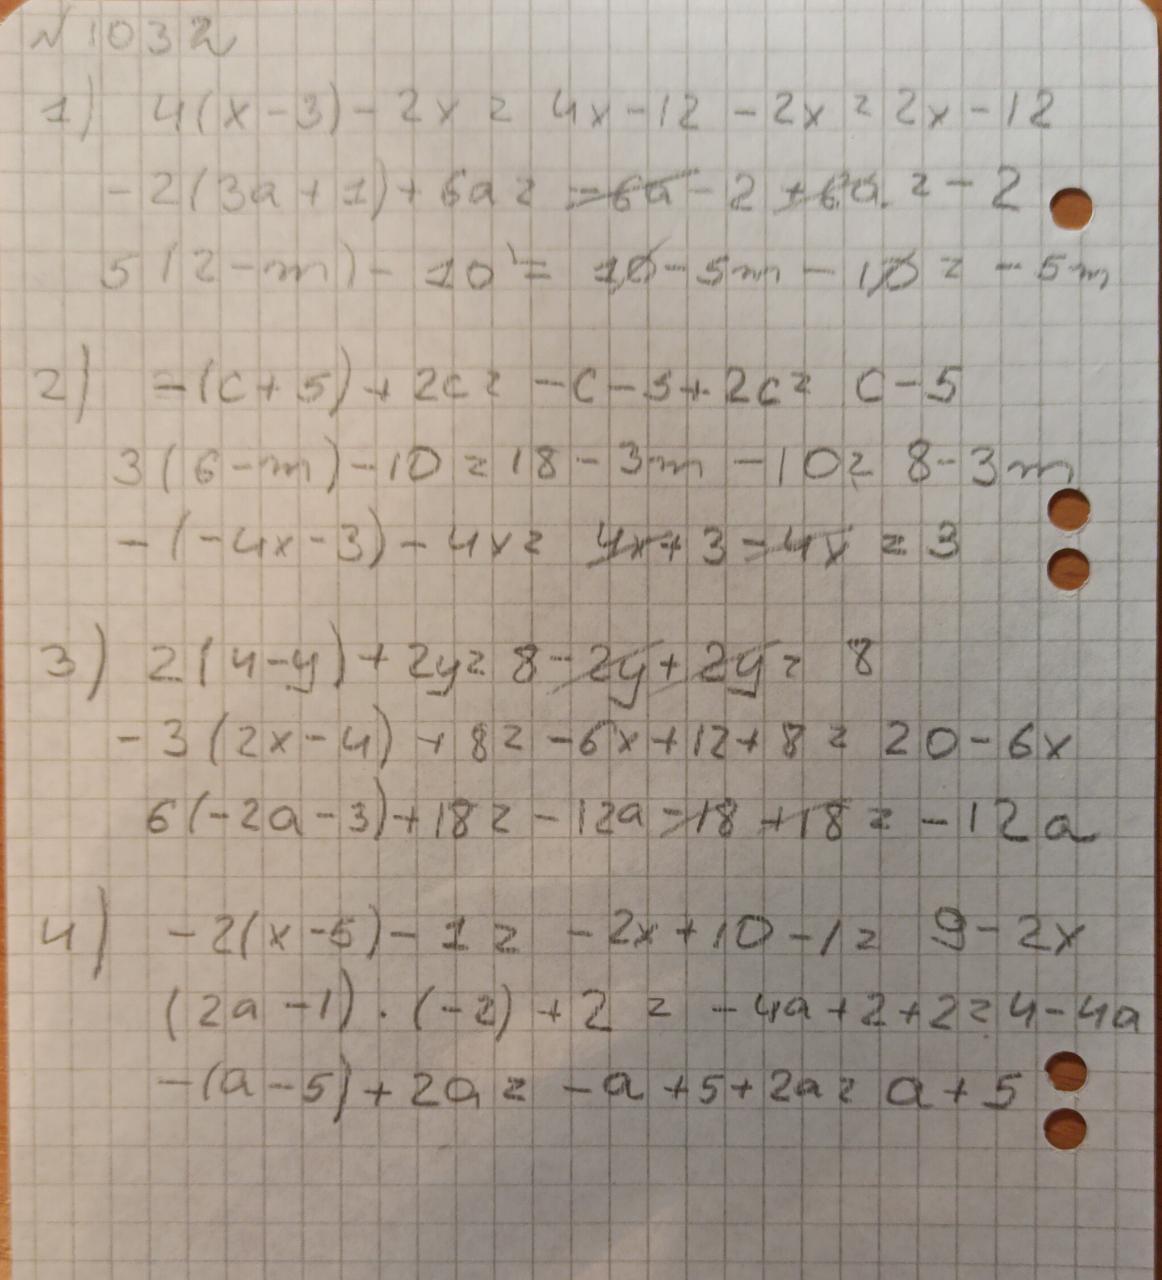 №1032
1) 4(x-3)-2x = 4x-12-2x = 2x-12
-2(3a+1)+6a = -6a-2+6a = -2
5(2-m)-10 = 10-5m-10 = -5m
2) -(c+5)+2c = -c-5+2c = c-5
3(6-m)-10 = 18-3m-10 = 8-3m
-(-4x-3)-4x = 4x+3-4x = 3
3) 2(4-y)+2y = 8-2y+2y = 8
-3(2x-4)+8 = -6x+12+8 = 20-6x
6(-2a-3)+18 = -12a-18+18 = -12a
4) -2(x-5)-1 = -2x+10-1 = 9-2x
(2a-1)·(-2)+2 = -4a+2+2 = 4-4a
-(a-5)+2a = -a+5+2a = a+5